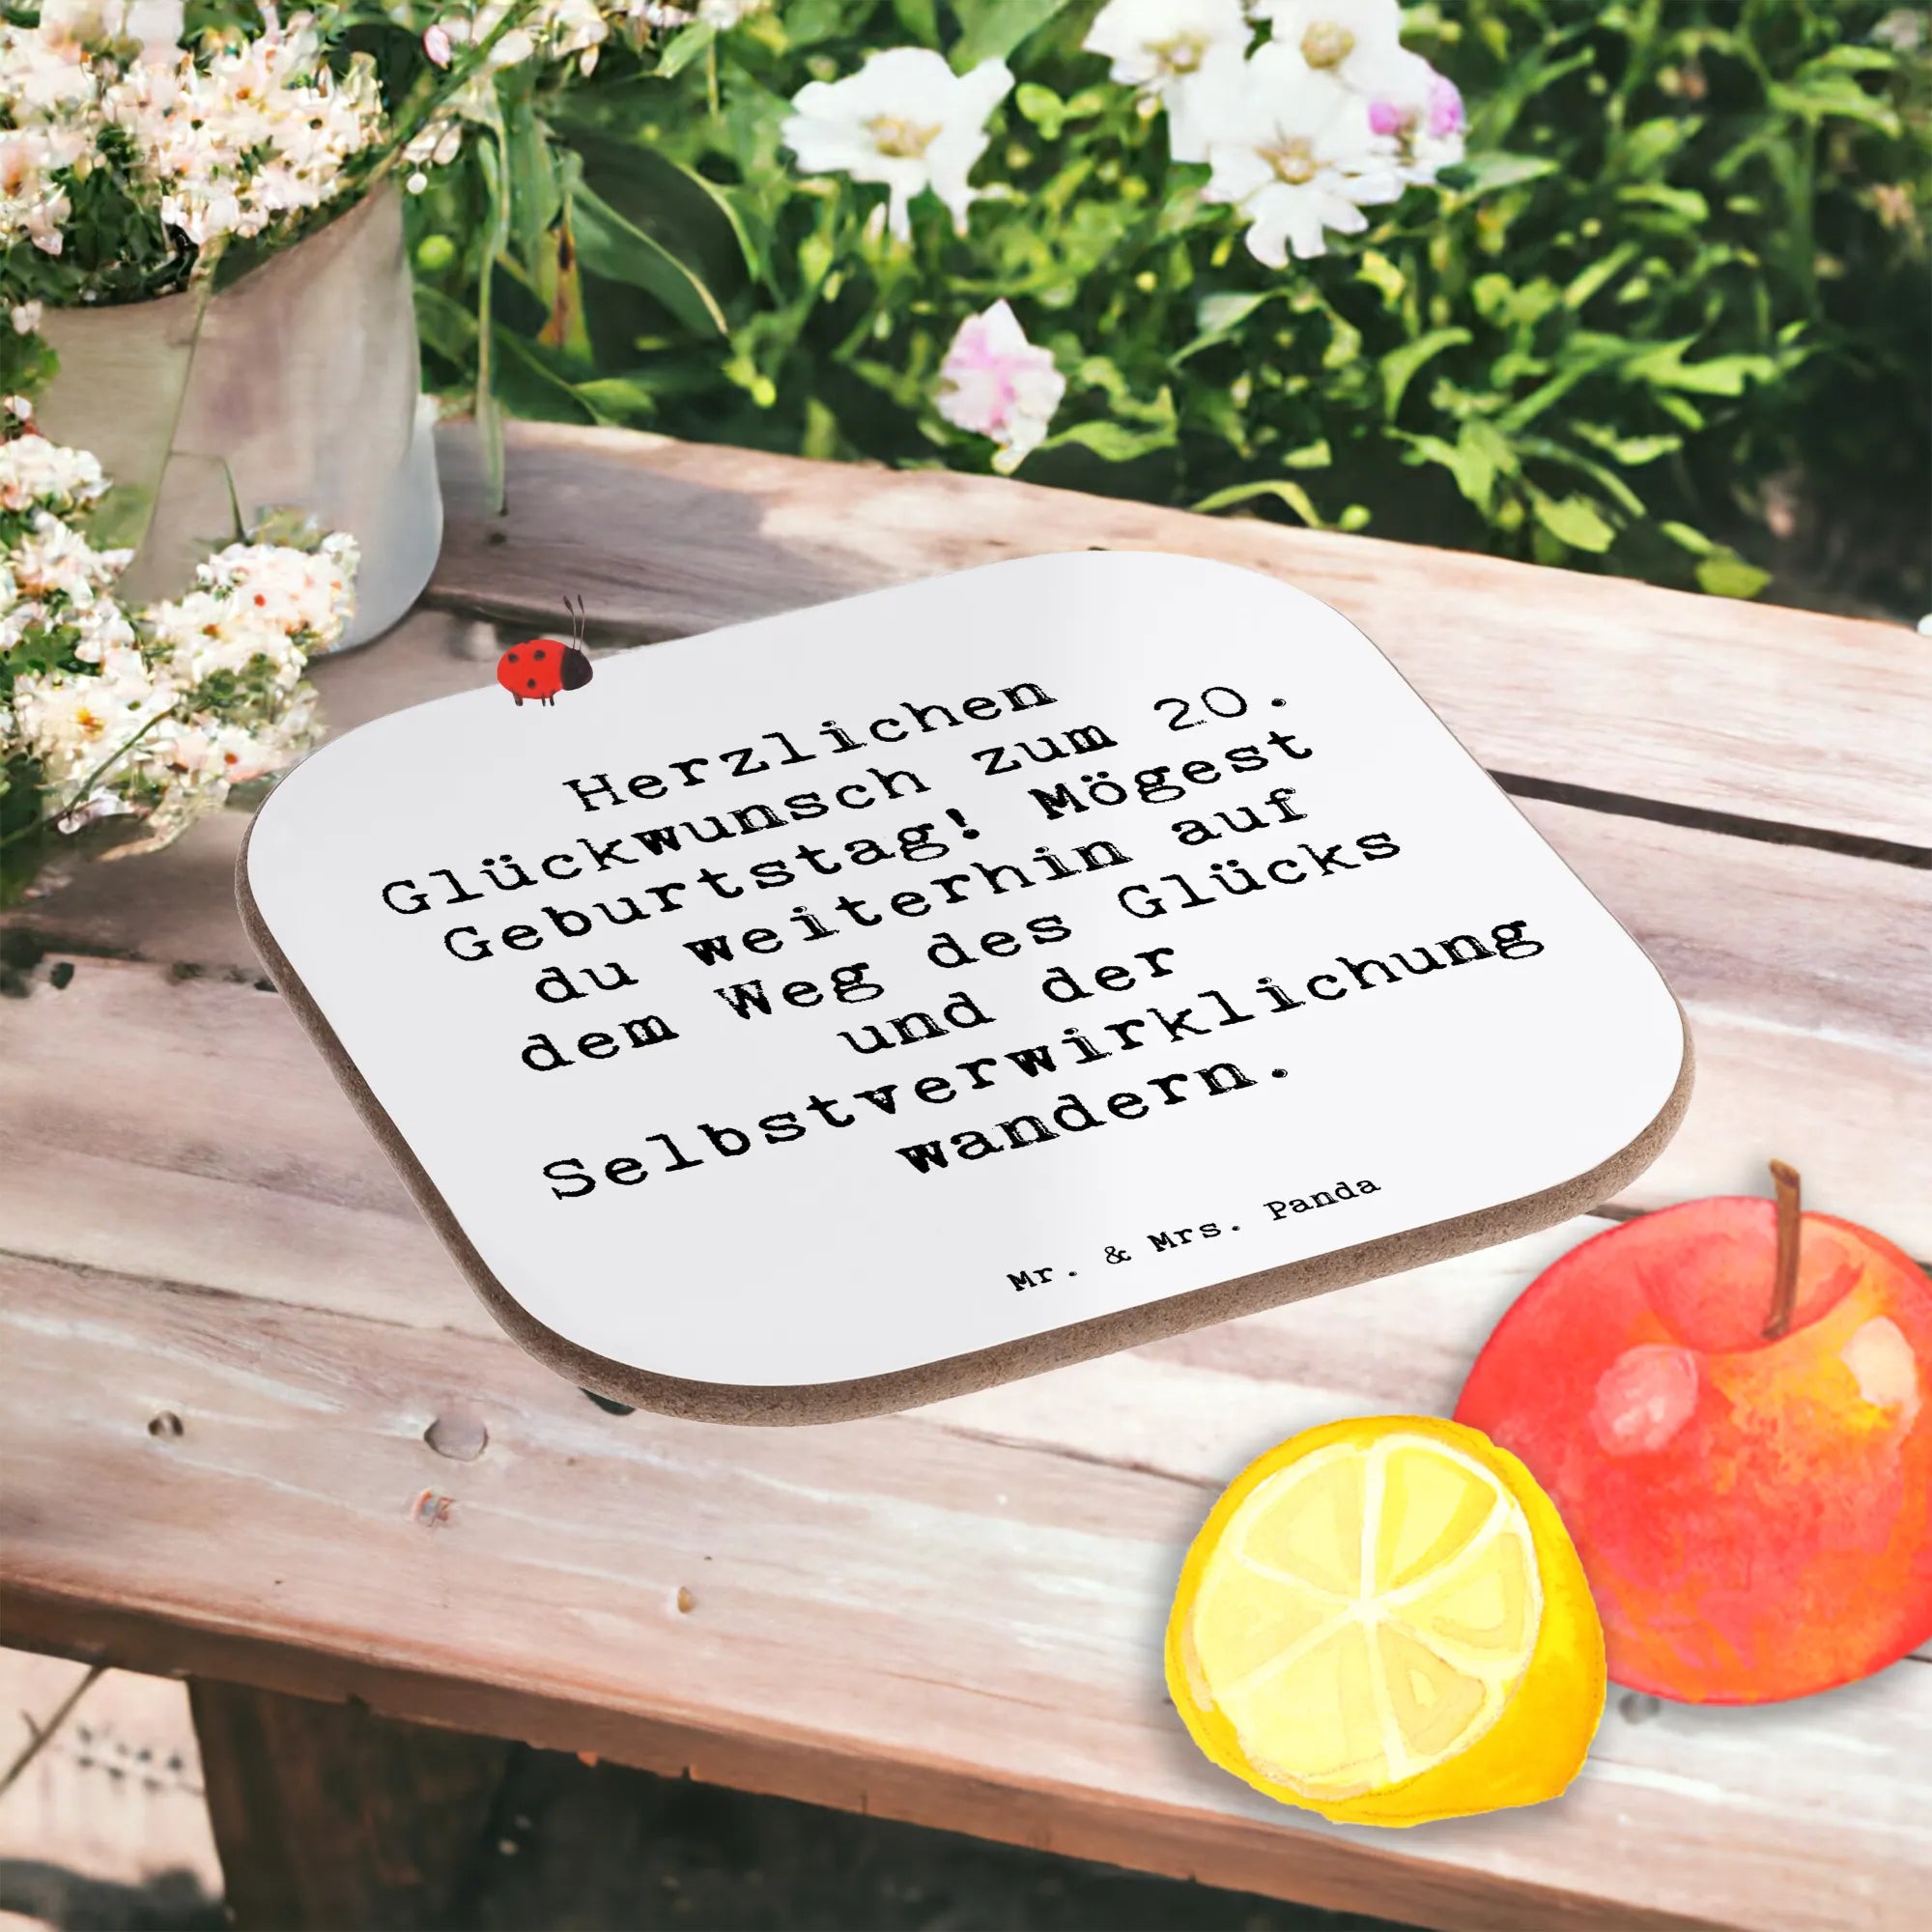 Herzlichen
Glückwunsch zum 20.
Geburtstag! Mögest
du weiterhin auf
dem Weg des Glücks
und der
Selbstverwirklichung
wandern.
Mr. & Mrs. Panda